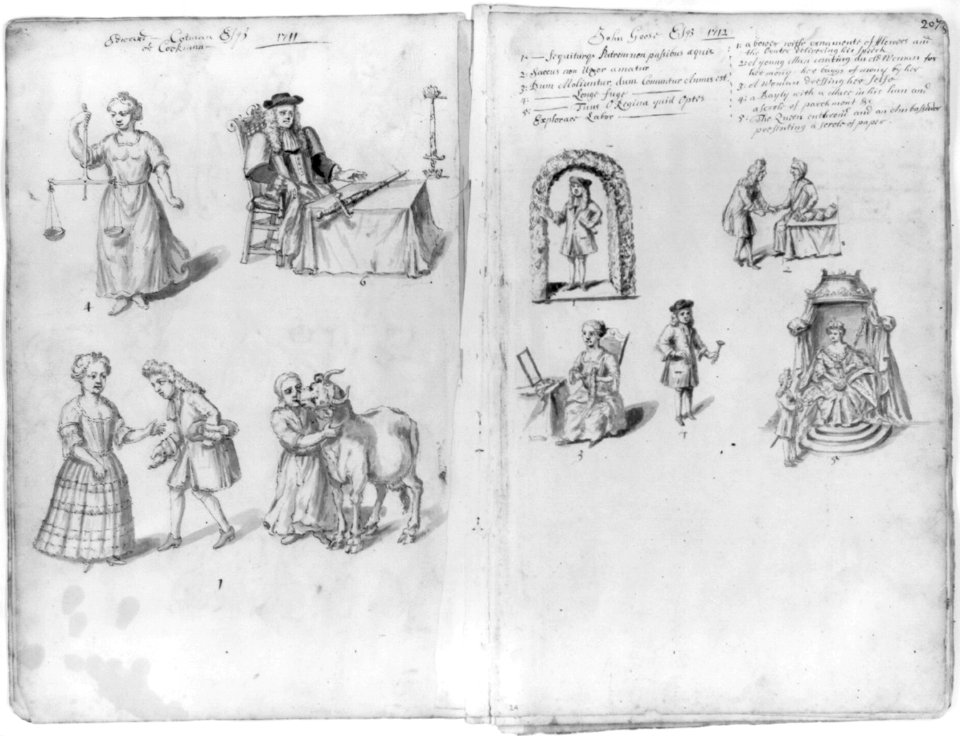 Edward Colman Esqr 1711
of Cockiana
4
6
1
John Goose Esqr 1712
1: — Sequiturq Patrem non passibus aquis
2: Saccus non Uxor amatur
3: Dum Moliuntur, dum Comuntur Annus est
4: Longe fuge
5: Tuus O Regina quid Optes
Explorare Labor
207
1: a bower with ornaments of flowers and
the Orator delivering his speech
2: A young Man courting an old Woman for
her mony: her baggs of mony by her
3: A Woman dressing her selfe
4: a Bayly with a Mace in his hand and
a scrole of parchment &c
5: The Queen enthrond and an Ambassador
presenting a scrole of paper.
1
2
3
4
5